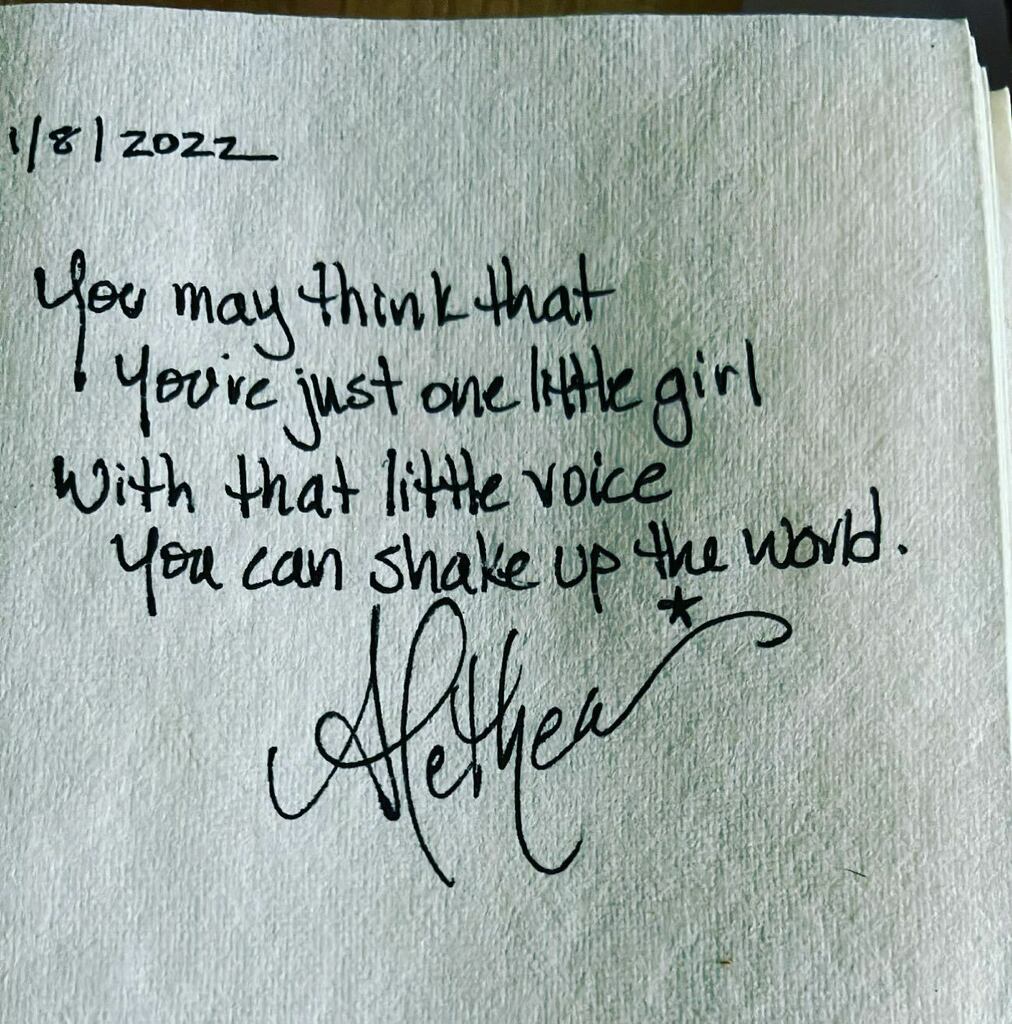 1/8/2022
You may think that
You're just one little girl
With that little voice
You can shake up the world.
*
Alethea